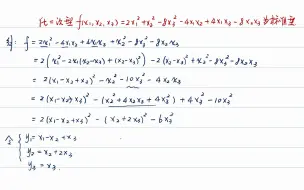 化二次型 f(x₁, x₂, x₃) = 2x₁² + x₂² - 8x₃² - 4x₁x₂ + 4x₁x₃ - 8x₂x₃ 为标准型
f = 2x₁² - 4x₁x₂ + 4x₁x₃ + x₂² - 8x₃² - 8x₂x₃
= 2(x₁² - 2x₁(x₂-x₃) + (x₂-x₃)²) - 2(x₂-x₃)² + x₂² - 8x₃² - 8x₂x₃
= 2(x₁-x₂+x₃)² - x₂² - 10x₃² - 4x₂x₃
= 2(x₁-x₂+x₃)² - (x₂² + 4x₂x₃ + 4x₃²) + 4x₃² - 10x₃²
= 2(x₁-x₂+x₃)² - (x₂+2x₃)² - 6x₃²
令 { y₁ = x₁-x₂+x₃
y₂ = x₂+2x₃
y₃ = x₃.